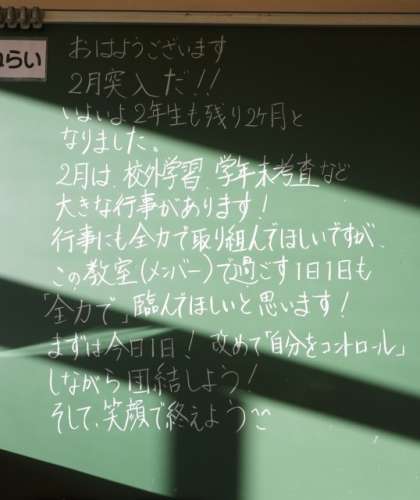 ねらい
おはようございます
2月突入だ!!
いよいよ2年生も残り2ヶ月と
なりました。
2月は、校外学習、学年末考査など
大きな行事があります!
行事にも全力で取り組んでほしいですが、
この教室(メンバー)で過ごす1日1日も
「全力で」臨んでほしいと思います!
まずは今日1日! 改めて「自分をコントロール」
しながら団結しよう!
そして、笑顔で終えよう